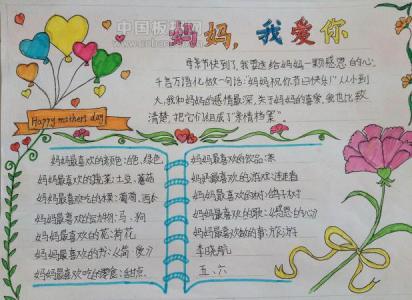 中国板报网
妈妈,我爱你
母亲节快到了,我要送给妈妈一颗感恩的心;
千言万语化做一句话:"妈妈祝你节日快乐!"从小到
大,我和妈妈的感情最深,关于妈妈的喜爱,我也比较
清楚,把它们组成了"亲情档案"。
Happy mothers day
妈妈最喜欢的颜色:白色,绿色
妈妈最喜欢的蔬菜:土豆、蘑菇
妈妈最喜欢吃的水果:葡萄、西瓜
妈妈最喜欢的动物:马、狗
妈妈最喜欢的花:荷花
妈妈最喜欢的书:《简·爱》
妈妈最喜欢吃的零食:甜点
妈妈最喜欢的饮品:茶
妈妈最喜欢的
妈妈最喜欢的树:
妈妈最喜欢的歌:《感恩的心》
妈妈最喜欢做的事:
李晓航
五、六